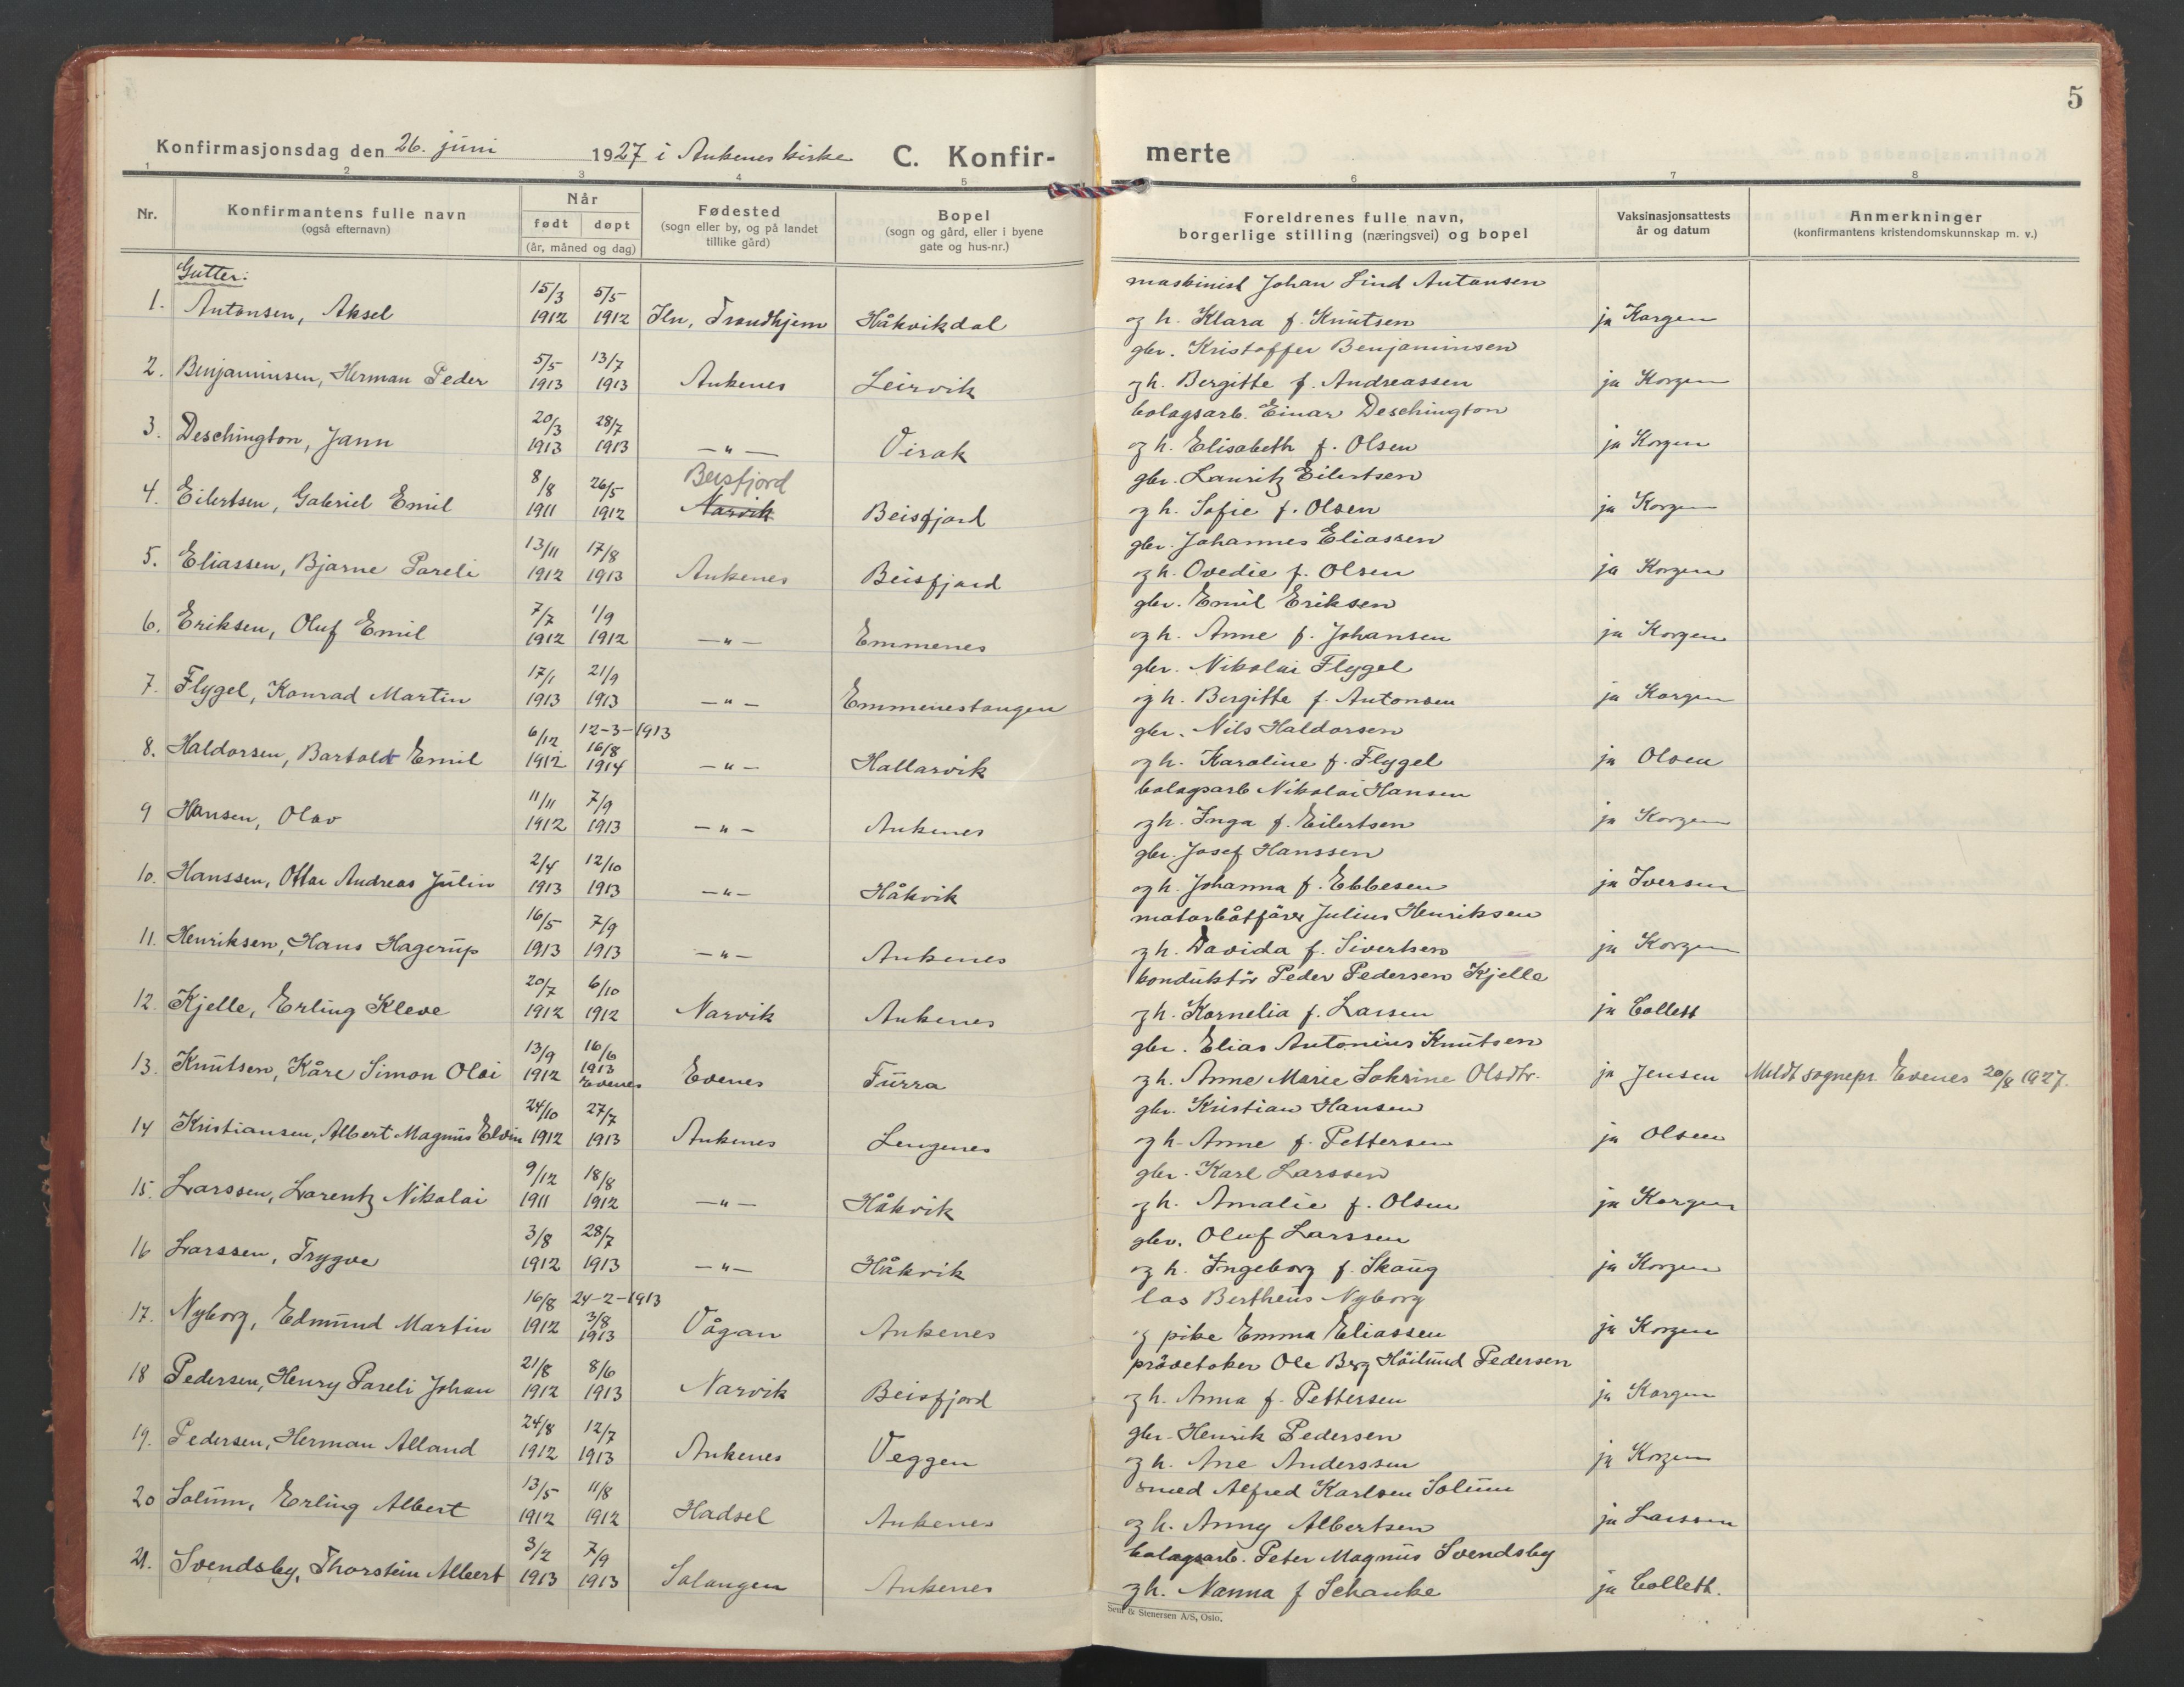 5
Konfirmasjonsdag den 26. juni 1927 i Ankenes kirke C. Konfir- merte
1 2 3 4 5 6 7 8
Nr. Konfirmantens fulle navn (også efternavn) Når født døpt (år, måned og dag) Fødested (sogn eller by, og på landet tillike gård) Bopel (sogn og gård, eller i byene gate og hus-nr.) Foreldrenes fulle navn, borgerlige stilling (næringsvei) og bopel Vaksinasjonsattests år og datum Anmerkninger (konfirmantens kristendomskunnskap m. v.)
Gutter:
15/3 5/5 maskinist Johan Lind Antonsen
1. Antonsen, Aksel 1912 1912 Iln, Trondhjem Håkvikdal og h. Klara f. Knutsen ja Korgen
5/5 13/7 gbr. Kristoffer Benjaminsen
2. Benjaminsen, Herman Peder 1913 1913 Ankenes Leirvik og h. Bergitte f. Andreassen ja Korgen
20/3 28/7 bolagsarb. Einar Deschington
3. Deschington, Jann 1913 1913 — " — Virak og h. Elisabeth f. Olsen ja Korgen
8/8 26/5 Beisfjord gbr. Lauritz Eilertsen
4. Eilertsen, Gabriel Emil 1911 1912 Narvik Beisfjord og h. Sofie f. Olsen ja Korgen
13/11 17/8 gbr. Johannes Eliassen
5. Eliassen, Bjarne Pareli 1912 1913 Ankenes Beisfjord og h. Ovedie f. Olsen ja Korgen
7/7 1/9 gbr. Emil Eriksen
6. Eriksen, Oluf Emil 1912 1912 — " — Emmenes og h. Anne f. Johansen ja Korgen
17/1 21/9 gbr. Nikolai Flygel
7. Flygel, Konrad Martin 1913 1913 — " — Emmenestangen og h. Bergitte f. Antonsen ja Korgen
6/12 12-3-1913 16/8 gbr. Nils Haldorsen
8. Haldorsen, Bartold Emil 1912 1914 — " — Hallarvik og h. Karoline f. Flygel ja Olsen
11/11 7/9 bolagsarb Nikolai Hansen
9 Hansen, Olav 1912 1913 — " — Ankenes og h. Inga f. Eilertsen ja Korgen
2/4 12/10 gbr. Josef Hanssen
10. Hanssen, Ottar Andreas Julin 1913 1913 — " — Håkvik og h. Johanna f. Ebbesen ja Iversen
16/5 7/9 motorbåtfører Julius Henriksen
11. Henriksen, Hans Hagerup 1913 1913 — " — Ankenes og h. Davida f. Sivertsen ja Korgen
20/7 6/10 konduktör Peder Pedersen Kjelle
12. Kjelle, Erling Kleve 1912 1912 Narvik Ankenes og h. Kornelia f. Larsen ja Collett
13/9 16/6 gbr. Elias Antonius Knutsen
13. Knutsen, Kåre Simon Olai 1912 1913 Evenes Evenes Furra og h. Anne Marie Sakrine Olsdtr. ja Jensen Meldt sognepr. Evenes 20/8 1927.
24/10 27/7 gbr. Kristian Hansen
14 Kristiansen, Albert Magnus Elvin 1912 1913 Ankenes Lengenes og h. Anne f. Pettersen ja Olsen
9/12 18/8 gbr. Karl Larssen
15. Larssen, Larentz Nikolai 1911 1912 — " — Håkvik og h. Amalie f. Olsen ja Korgen
3/8 28/7 gbr. Oluf Larssen
16 Larssen, Trygve 1912 1913 — " — Håkvik og h. Ingeborg f. Skaug ja Korgen
16/8 24-2-1913 3/8 løs Bertheus Nyborg
17. Nyborg, Edmund Martin 1912 1913 Vågan Ankenes og pike Emma Eliassen ja Korgen
21/8 8/6 prövetaker Ole Berg Höilund Pedersen
18 Pedersen, Henry Pareli Johan 1912 1913 Narvik Beisfjord og h. Anna f. Pettersen ja Korgen
24/8 12/7 gbr. Henrik Pedersen
19. Pedersen, Herman Alland 1912 1913 Ankenes Veggen og h. Ane Anderssen ja Korgen
13/5 11/8 smed Alfred Karlsen Solum
20 Solum, Erling Albert 1912 1912 Hadsel Ankenes og h. Anny Albertsen ja Larssen
3/2 7/9 bolagsarb. Peter Magnus Svendsby
21. Svendsby, Thorstein Albert 1913 1913 Salangen Ankenes og h. Nanna f Schanke ja Collett.
Sem & Stenersen A/S, Oslo.